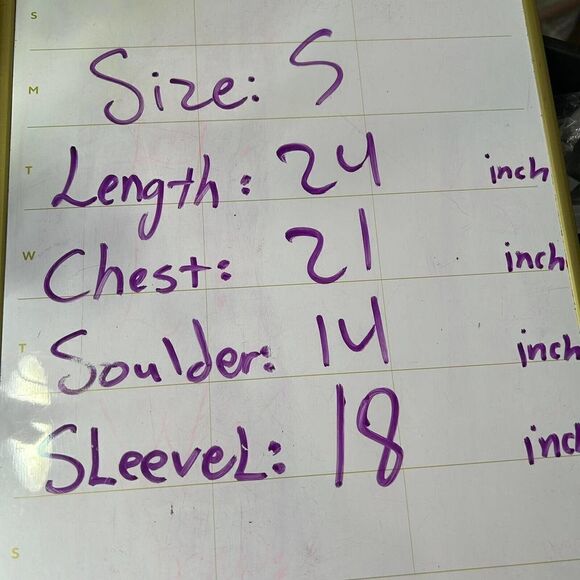 S
M
Size: S
T
Length: 24 inch
W
Chest: 21 inch
T
Soulder: 14 inch
SLeeveL: 18 inch
S